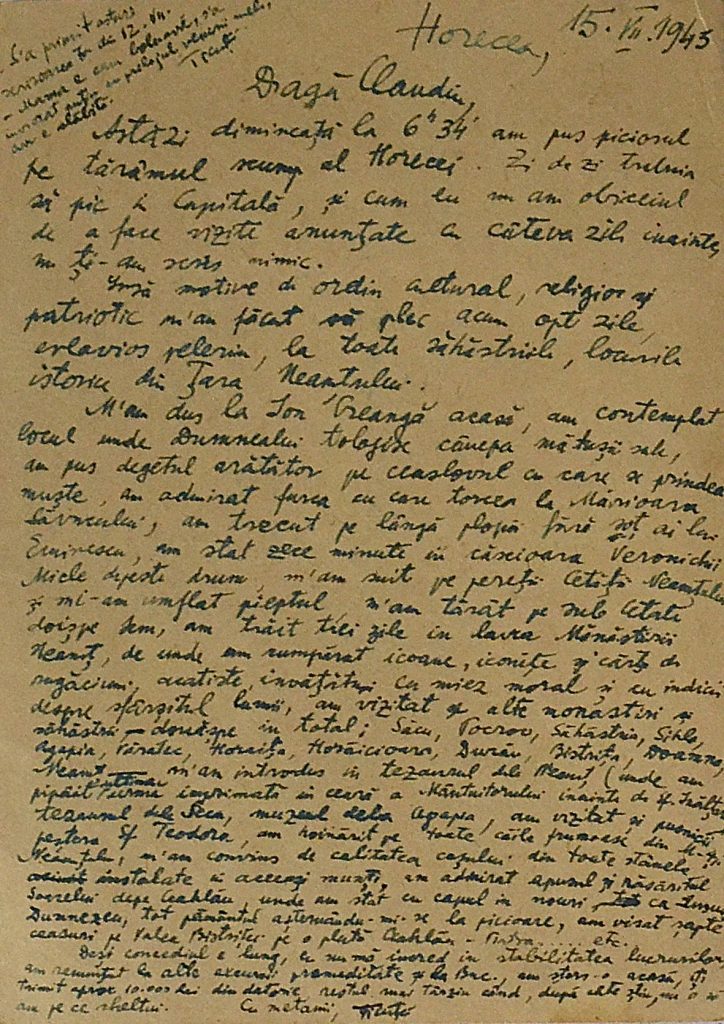 - S'a primit astăzi
scrisoarea ta din 12.VII.
- Mama e cam bolnavă, s'a
au e slăbită.
Horecea, 15.VII.1943
Dragă Claudiu,
Astăzi dimineață la 6h 34' am pus piciorul
pe tărâmul scump al Horecei. Zi de zi trebuia
să pic în Capitală, și cum eu nu am obiceiul
de a face vizite anunțate cu câteva zile înainte,
nu ți-am scris nimic.
Însă motive de ordin cultural, religios și
patriotic m'au făcut să plec acum opt zile,
evlavios pelerin, la toate săhăstriile, locurile
istorice din Țara Neamțului.
M'am dus la Ion Creangă acasă, am contemplat
locul unde Dumnealui tologise cânepa mătușă sale,
am pus degetul arătător pe ceaslovul cu care se prindea
muște, am admirat furca cu care torcea la Mărioara
Săvucului, am trecut pe lângă plopii fără soț ai lui
Eminescu, am stat zece minute în căscioara Veronichii
Micle peste drum, m'am suit pe pereții Cetății Neamțului
și mi-am umflat pieptul, m'am târât pe sub Cetate
doispe km, am trăit trei zile în lavra Monăstirii
Neamț, de unde am cumpărat icoane, iconițe și cărți de
rugăciuni, acatiste învățături cu miez moral și cu indicii
despre sfârșitul lumii, am vizitat și alte monăstiri și
săhăstrii – douăspe în total; Secu, Pocrov, Săhăstria, Sihla,
Agapia, Văratec, Horaița, Horăicioara, Durău, Bistrița, Doamna,
Neamț m'am introdus în tezaurul dela Neamț (unde am
pipăit urma imprimată în ceară a Mântuitorului înainte de sf. Înălțare
tezaurul dela Secu, muzeul dela Agapia, am vizitat și pusnicii
peștera Sf. Teodora, am hoinărit pe toate căile frumoase din M-ții
Neamțului, m'am convins de calitatea cașului din toate stânele
instalate în aceeași munți, am admirat apusul și răsăritul
Soarelui depe Ceahlău, unde am stat cu capul în nouri, ca însuși
Dumnezeu, tot pământul așternându-mi-se la picioare, am visat șapte
ceasuri pe Valea Bistriței pe o plută Ceahlău – Piatra .... etc.
Deși concediul e lung, eu nu mă încred în stabilitatea lucrurilor
am renunțat la alte excursii premeditate și la Buc., am stors-o acasă, îți
trimit aprox 10.000 lei din datorie, restul mai târziu când, după câte știu, nu o să
am pe ce cheltui. Cu metanii,